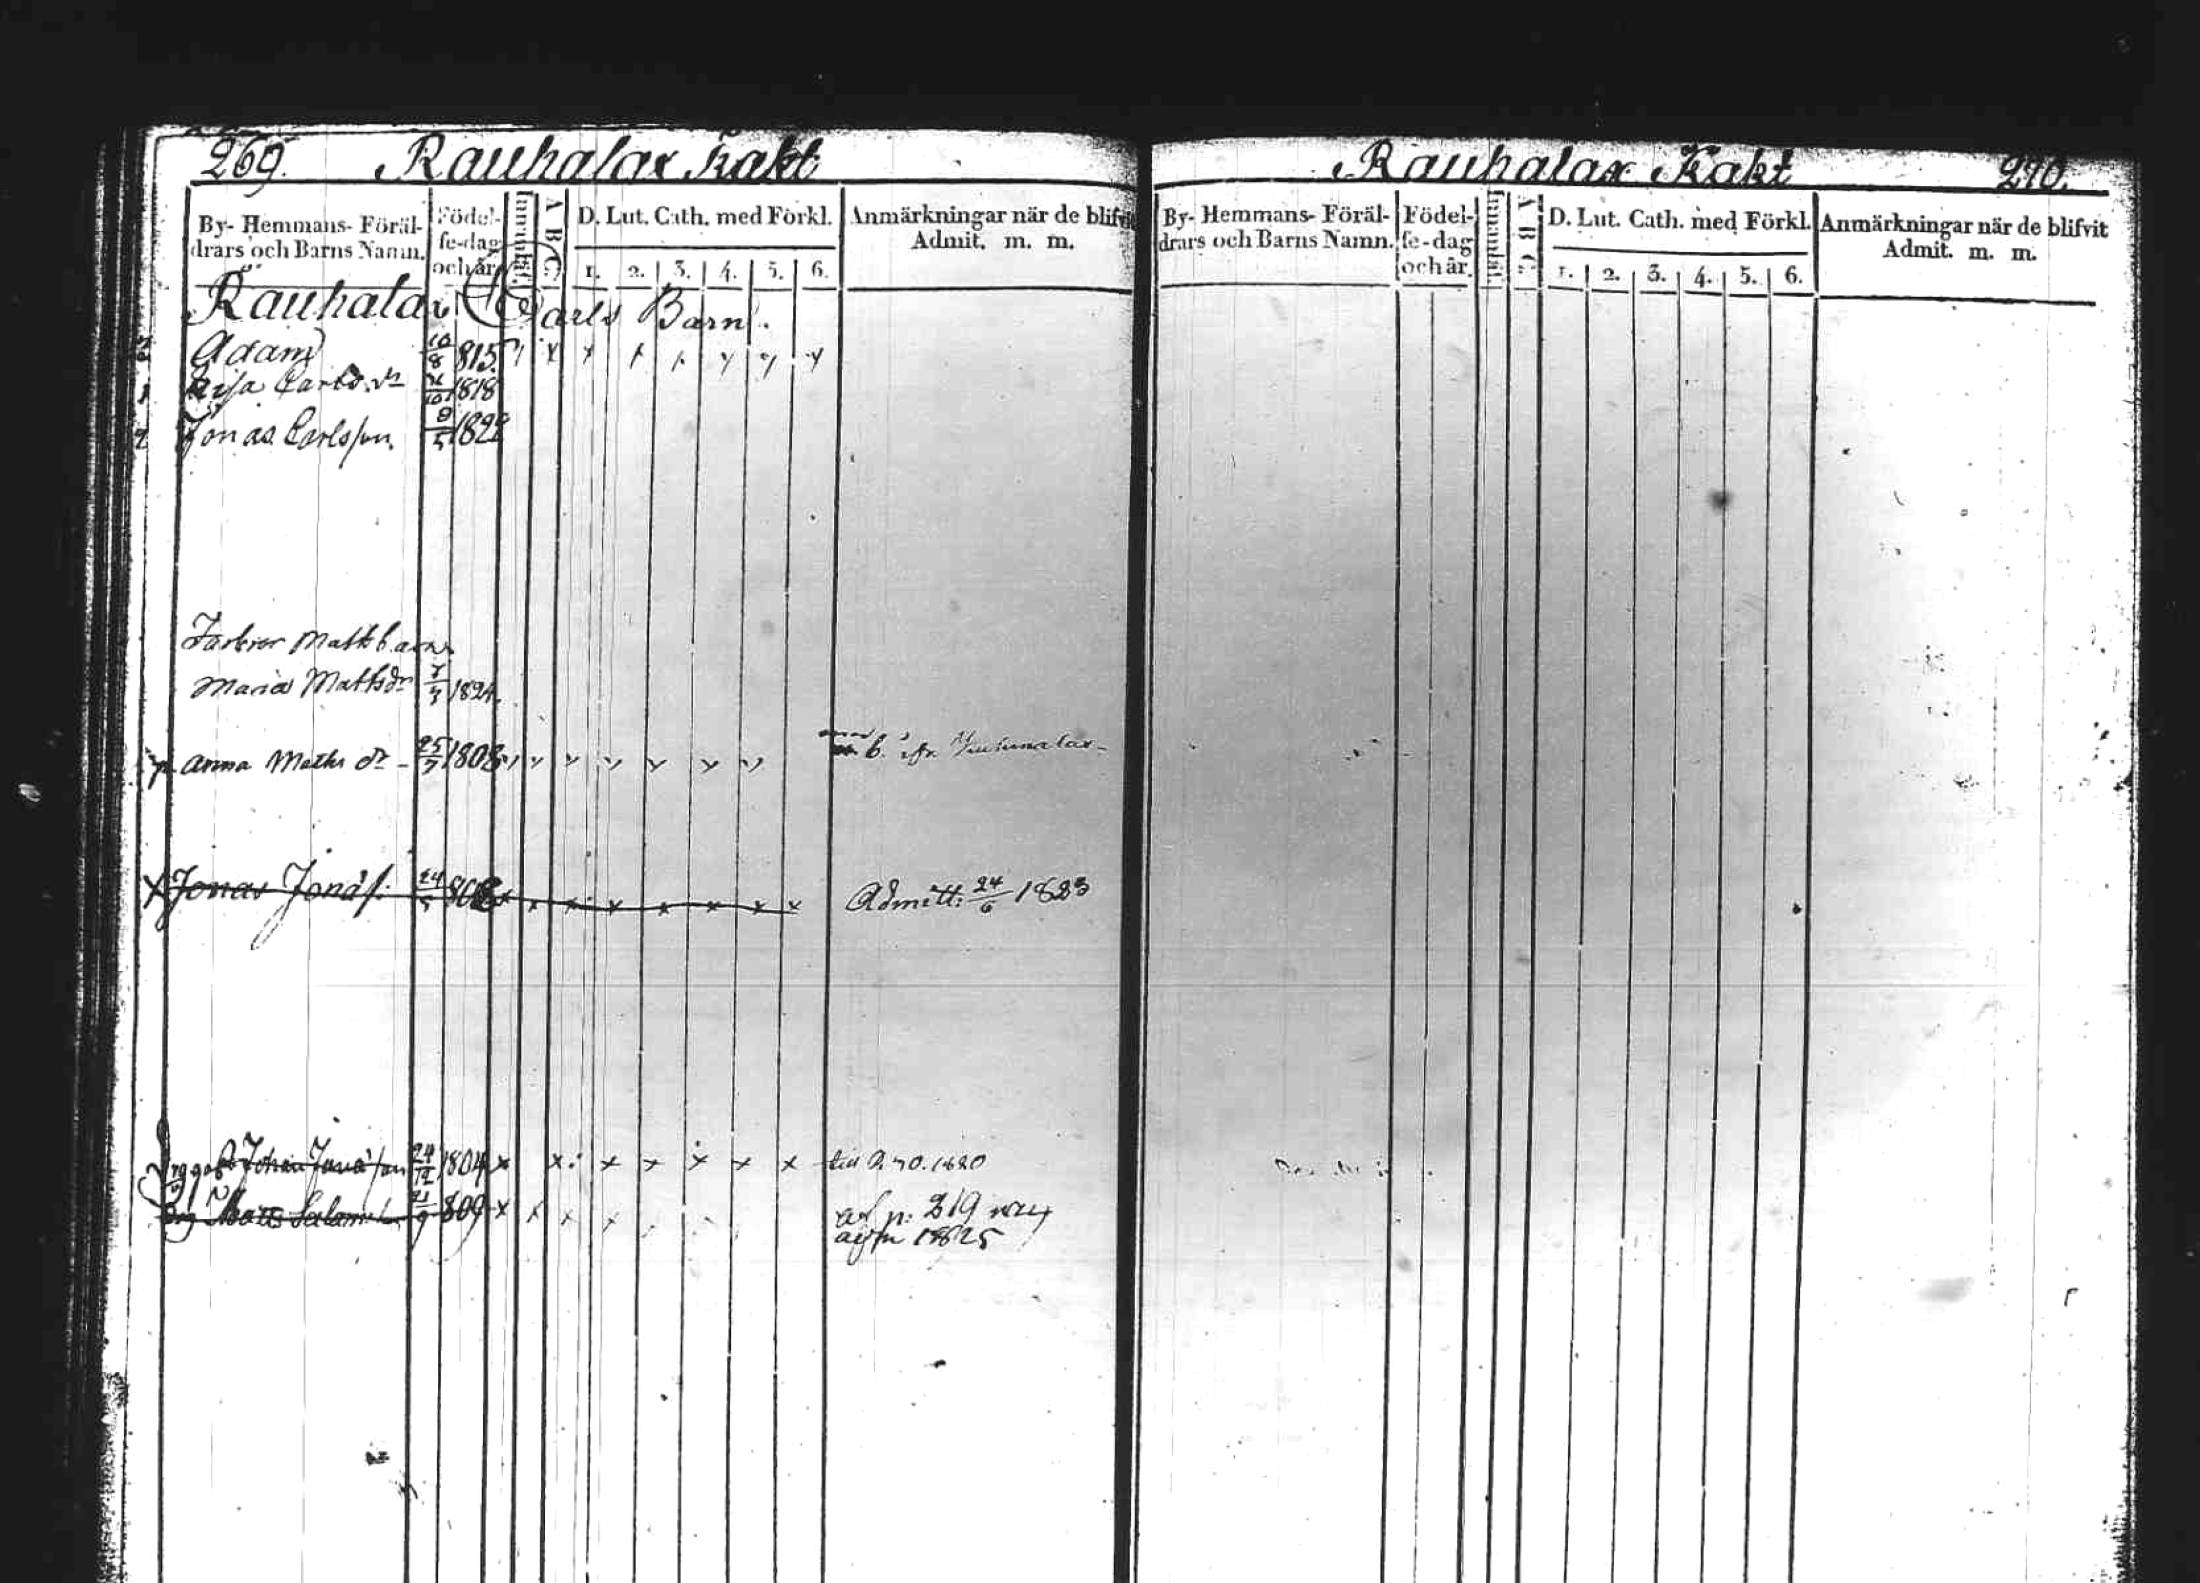 269. Rauhalax Kakt
By- Hemmans- Föräl-
drars och Barns Namn.
Födel-
se-dag
och år.
A B C
D. Lut. Cath. med Förkl.
1. 2. 3. 4. 5. 6.
Anmärkningar när de blifvit
Admit. m. m.
Rauhalax Carls Barn.
Adam 10/8 815. x x x x x x x
Carlsdr 1818
Jonas Carlsson 9/5 1822
Matts barn
Maria Mattsdr 1824.
Anna Maths dr - 25/7 1808
x Jonas Jonaſ: 24 808 x x x x x x x x Admitt: 24/6 1823
Johan Jonaſson 24/12 1804 x x x x x x x till P. 70. 1820
Salom 21/9 809 x x x x af p: 219
1825
Rauhalax Kakt 270.
By- Hemmans- Föräl-
drars och Barns Namn.
Födel-
se-dag
och år.
A B C
D. Lut. Cath. med Förkl.
1. 2. 3. 4. 5. 6.
Anmärkningar när de blifvit
Admit. m. m.